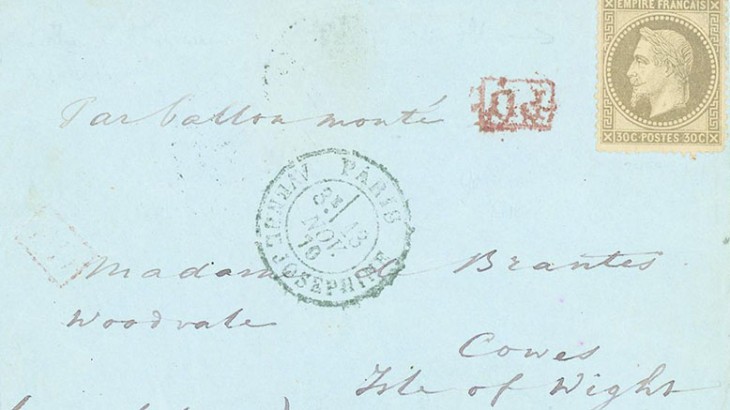 EMPIRE FRANÇAIS
30C·POSTES·30C
Par ballon monté
PARIS
AV JOSEPHINE
3E
18
NOV.
70
Madame de Brantes
Woodvale
Cowes
Isle of Wight